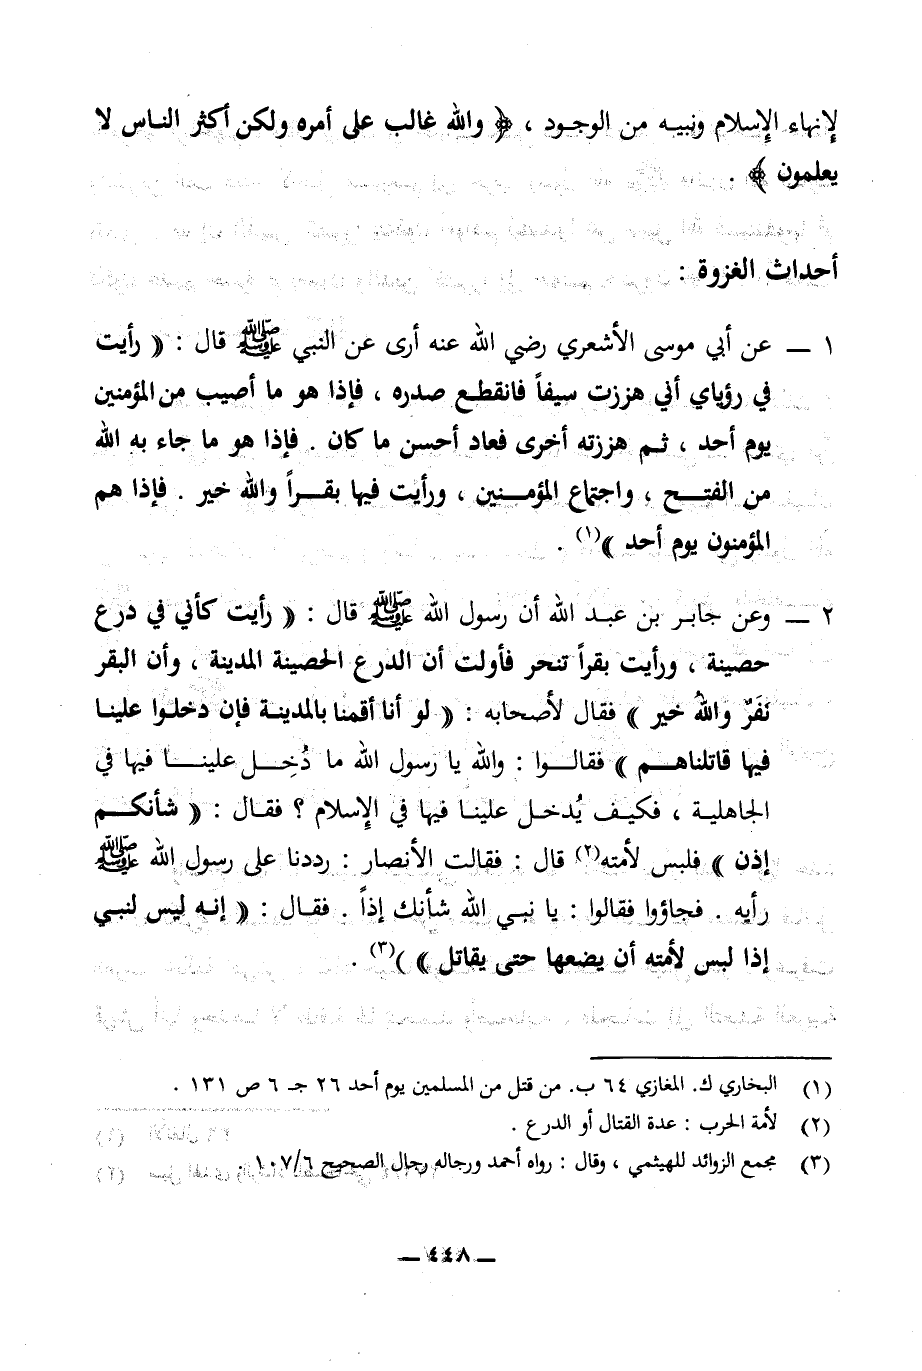 لإنهاء الإسلام ونبيه من الوجود ، ﴿ والله غالب على أمره ولكن أكثر الناس لا
يعلمون ﴾ .
أحداث الغزوة :
١ ــ عن أبي موسى الأشعري رضي الله عنه أرى عن النبي ﷺ قال : « رأيت
في رؤياي أني هززت سيفاً فانقطع صدره ، فإذا هو ما أصيب من المؤمنين
يوم أحد ، ثم هززته أخرى فعاد أحسن ما كان . فإذا هو ما جاء به الله
من الفتح ، واجتماع المؤمنين ، ورأيت فيها بقراً والله خير . فإذا هم
المؤمنون يوم أحد »(١) .
٢ ــ وعن جابر بن عبد الله أن رسول الله ﷺ قال : « رأيت كأني في درع
حصينة ، ورأيت بقراً تنحر فأولت أن الدرع الحصينة المدينة ، وأن البقر
نَفَرٌ واللهُ خير » فقال لأصحابه : « لو أنا أقمنا بالمدينة فإن دخلوا علينا
فيها قاتلناهم » فقالوا : والله يا رسول الله ما دُخِل علينا فيها في
الجاهلية ، فكيف يُدخل علينا فيها في الإسلام ؟ فقال : « شأنكم
إذن » فلبس لأمته(٢) قال : فقالت الأنصار : رددنا على رسول الله ﷺ
رأيه . فجاؤوا فقالوا : يا نبي الله شأنك إذاً . فقال : « إنه ليس لنبي
إذا لبس لأمته أن يضعها حتى يقاتل » )(٣) .
(١) البخاري ك. المغازي ٦٤ ب. من قتل من المسلمين يوم أحد ٢٦ جـ ٦ ص ١٣١ .
(٢) لأمة الحرب : عدة القتال أو الدرع .
(٣) مجمع الزوائد للهيثمي ، وقال : رواه أحمد ورجاله رجال الصحيح ١٠٧/٦ .
ــ ٤٤٨ ــ